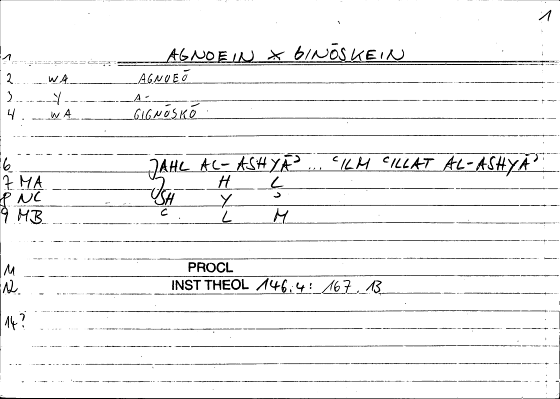 1
1 AGNOEIN X GINŌSKEIN
2 WA AGNOEŌ
3 Y A-
4 WA GIGNŌSKŌ
6 JAHL AL-ASHYĀʾ... ʿILM ʿILLAT AL-ASHYĀʾ
7 MA J H L
8 NC SH Y ʾ
9 MB ʿ L M
11 PROCL
12 INST THEOL 146.4: 167.13
14?